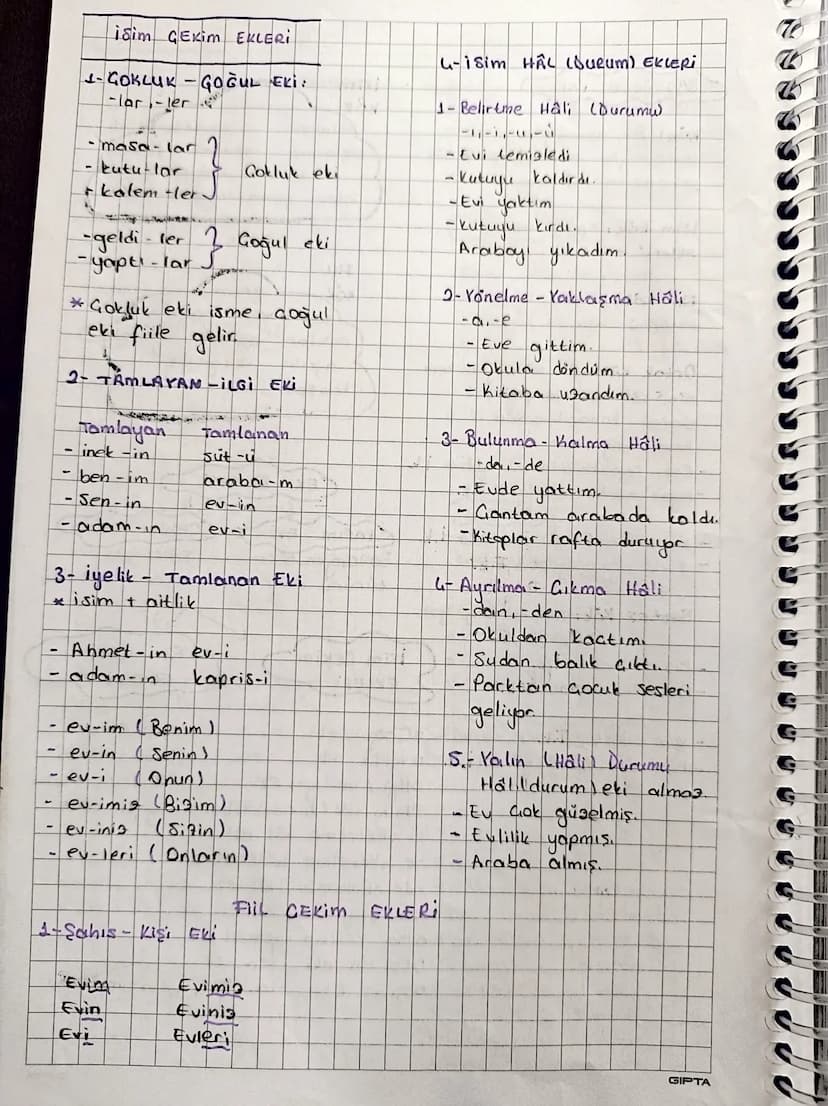 İSİM ÇEKİM EKLERİ
1-ÇOKLUK - ÇOĞUL EKİ:
-lar, -ler
-masa-lar
-kutu-lar
+ kalem-ler
Çokluk eki
-geldi-ler
-yaptı-lar
Çoğul eki
* Çokluk eki isme, çoğul
eki fiile gelir.
2- TAMLAYAN - İLGİ EKİ
Tamlayan Tamlanan
- inek-in süt-ü
- ben-im araba-m
- sen-in ev-in
- adam-ın ev-i
3- İyelik - Tamlanan Eki
* isim + aitlik
- Ahmet-in ev-i
- adam-ın kapris-i
- ev-im (Benim)
- ev-in (Senin)
- ev-i (Onun)
- ev-imiz (Bizim)
- ev-iniz (Sizin)
- ev-leri (Onların)
4-İSİM HÂL (Durum) EKLERİ
1- Belirtme Hâli (Durumu)
-ı, -i, -u, -ü
- Evi temizledi
- Kutuyu kaldırdı.
- Evi yaktım
- Kutuyu kırdı.
Arabayı yıkadım.
2- Yönelme - Yaklaşma Hâli
-a, -e
- Eve gittim.
- Okula döndüm
- Kitaba uzandım.
3- Bulunma - Kalma Hâli
-da, -de
- Evde yattım.
- Çantam arabada kaldı.
- Kitaplar rafta duruyor
4- Ayrılma - Çıkma Hâli
-dan, -den
- Okuldan kaçtım.
- Sudan balık çıktı.
- Parktan çocuk sesleri
geliyor.
5.- Yalın (Hâli) Durumu
Hâl(durum) eki almaz.
- Ev çok güzelmiş.
- Evlilik yapmış.
- Araba almış.
FİİL ÇEKİM EKLERİ
1-Şahıs - Kişi Eki
Evim Evimiz
Evin Eviniz
Evi Evleri
GIPTA